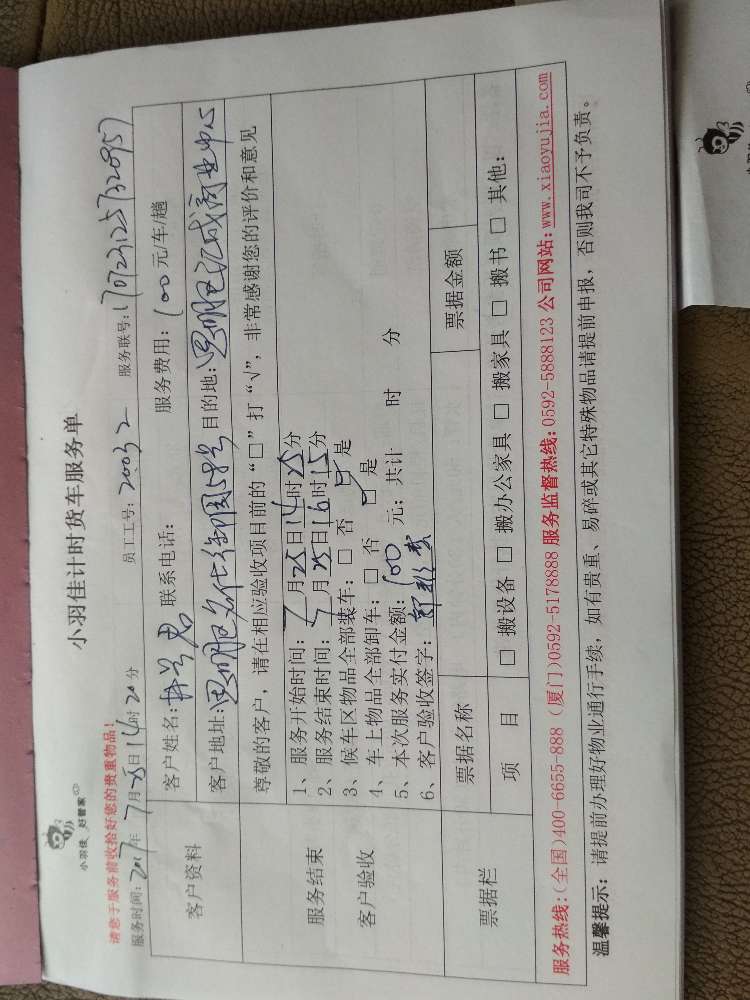 小羽佳 好管家
小羽佳计时货车服务单
请您于服务前收拾好您的贵重物品!
服务时间: 2017年 7月25日14时20分 员工工号: 20032 服务联号: 1707231257328957
客户资料
客户姓名: 联系电话: 服务费用: 100元/车/趟
客户地址: 思明区 58号 目的地: 思明区汇成商业中心
尊敬的客户，请在相应验收项目前的“□”打“√”，非常感谢您的评价和意见
服务结束
客户验收
1、服务开始时间: 7月25日14时25分
2、服务结束时间: 7月25日16时15分
3、候车区物品全部装车: □ 否 ☑ 是
4、车上物品全部卸车: □ 否 ☑ 是
5、本次服务实付金额: 600 元; 共计 时 分
6、客户验收签字:
票据栏
票据名称 票据金额
项 目 □ 搬设备 □ 搬办公家具 □ 搬家具 □ 搬书 □ 其他:
服务热线:(全国)400-6655-888 (厦门)0592-5178888 服务监督热线: 0592-5888123 公司网站: www.xiaoyujia.com
温馨提示: 请提前办理好物业通行手续，如有贵重、易碎或其它特殊物品请提前申报，否则我司不予负责。